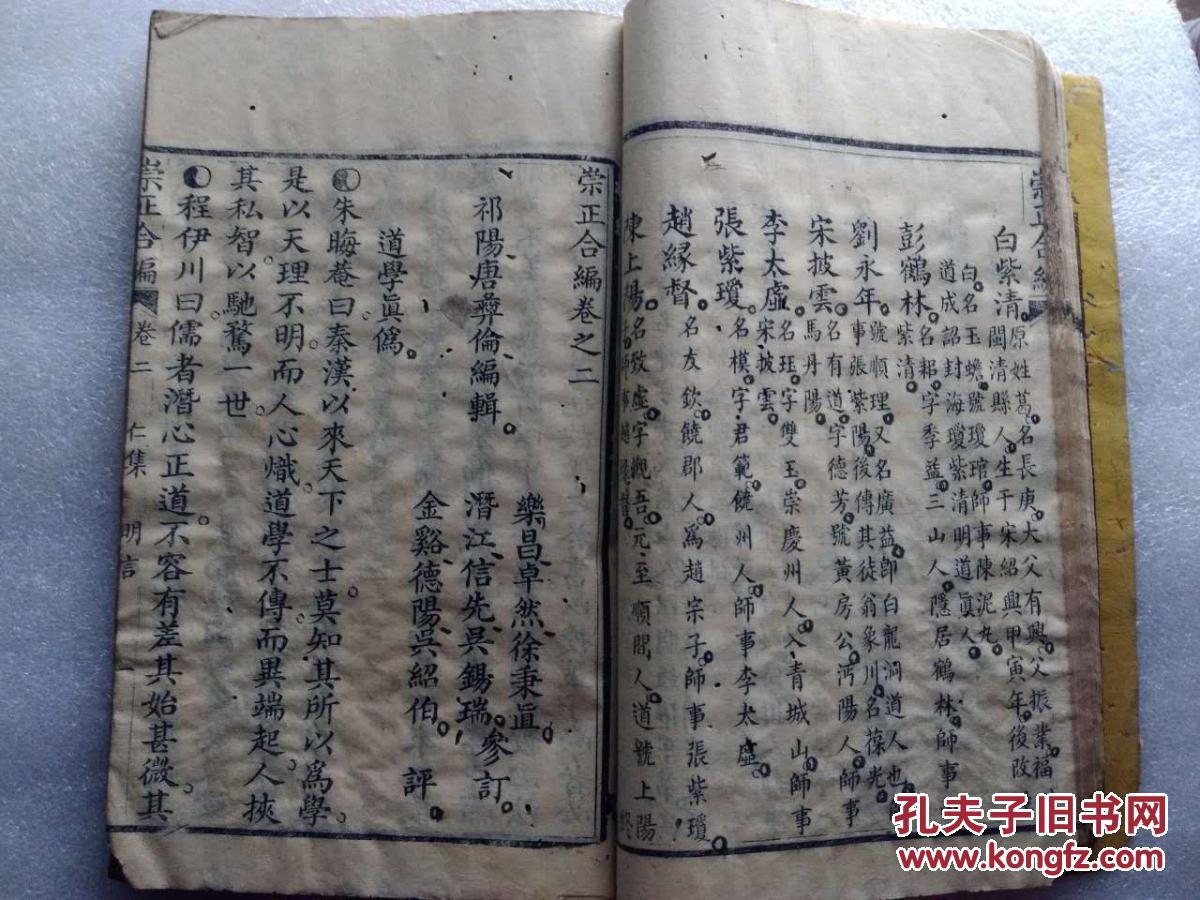 崇正合編
白紫清原姓葛名長庚大父有興父振業福
閩清縣人生于宋紹興甲寅年後改
白名玉蟾號瓊琯師事陳泥丸
道成詔封海瓊紫清明道眞人
彭鶴林名耜字季益三山人隱居鶴林師事
紫清
劉永年號順理又名廣益卽白龍洞道人也
事張紫陽後傳其徒翁象川名葆光
宋披雲名有道字德芳號黃房公沔陽人師事
馬丹陽
李太虛名珏字雙玉崇慶州人入青城山師事
宋披雲
張紫瓊名模字君範饒州人師事李太虛
趙緣督名友欽饒郡人爲趙宗子師事張紫瓊
陳上陽名致虛字觀吾元至順間人道號上陽
師事趙緣督
崇正合編卷之二
樂昌卓然徐秉眞
祁陽唐彝倫編輯
潛江信先吳錫瑞參訂
金谿德陽吳紹伯評
道學眞僞
朱晦菴曰秦漢以來天下之士莫知其所以爲學
是以天理不明而人心熾道學不傳而異端起人挾
其私智以馳騖一世
程伊川曰儒者潛心正道不容有差其始甚微其
崇正合編 卷二 仁集 明言 一
孔夫子旧书网
www.kongfz.com